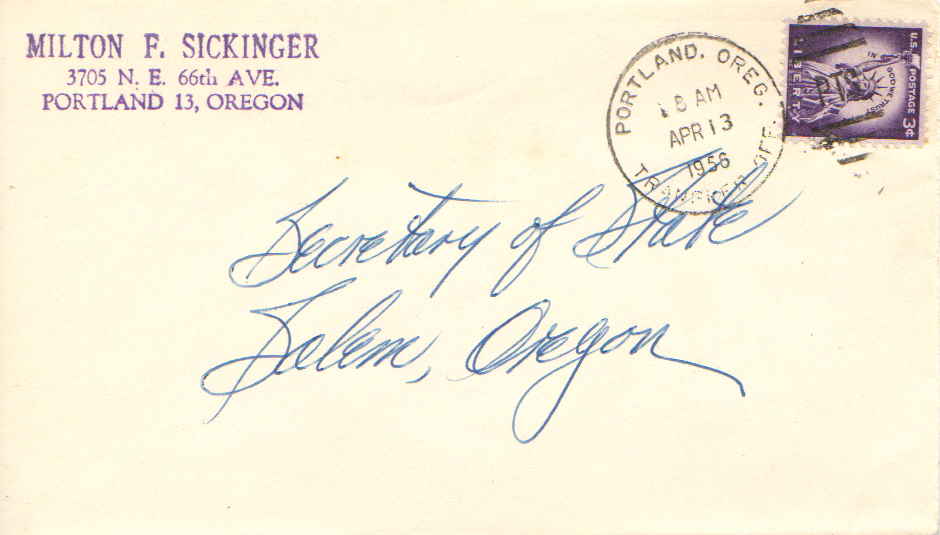 MILTON F. SICKINGER
3705 N. E. 66th AVE.
PORTLAND 13, OREGON
PORTLAND, OREG.
8 AM
APR 13
1956
TRANSFER OFF.
PTS
U.S. POSTAGE 3¢
IN GOD WE TRUST
LIBERTY
Secretary of State
Salem, Oregon